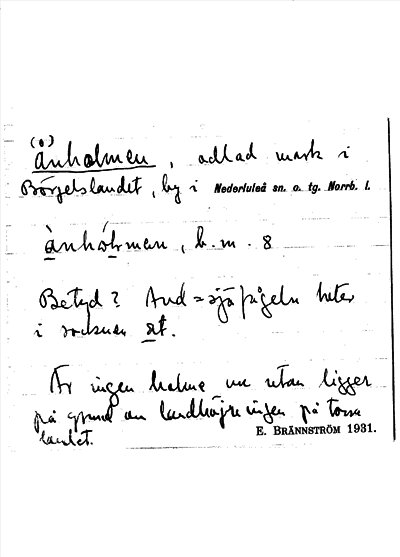 (o)
ånholmen, odlad mark i
Börjelslandet, by i Nederluleå sn. o. tg. Norrb. l.
ànhólman, b. m. 8
Betyd? And = sjöfågeln heter
i socknen åt.
Är ingen holme nu utan ligger
på grund av landhöjningen på torra
landet.
E. BRÄNNSTRÖM 1931.